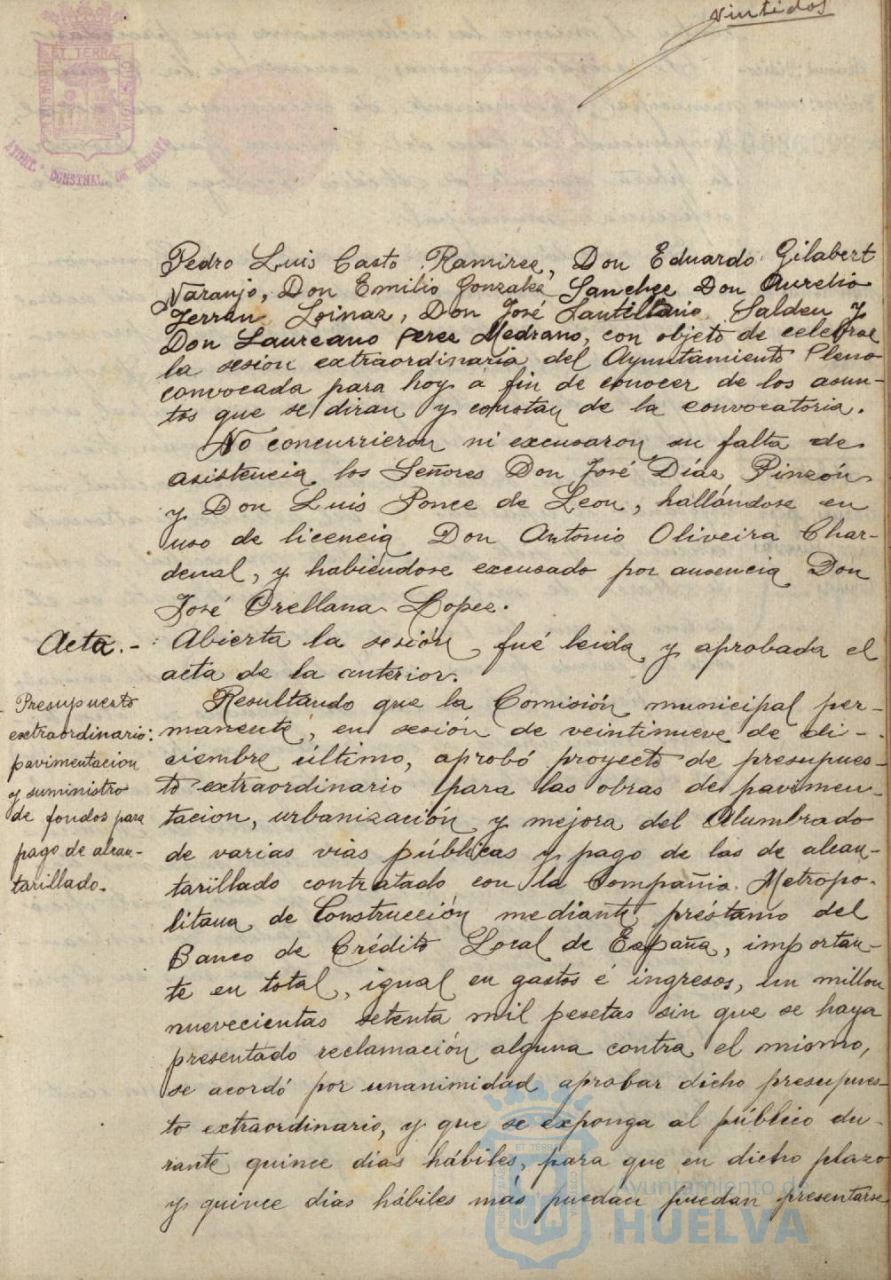 Vintidos
ET TERRÆ
AYUNT. CONSTNAL. DE HUELVA
Pedro Luis Casto Ramirez, Don Eduardo Gilabert
Naranjo, Don Emilio Gonzalez Sanchez Don Aurelio
Terran Loinaz, Don José Santillano Salden y
Don Laureano Perez Medrano, con objeto de celebrar
la sesion extraordinaria del Ayuntamiento Pleno
convocada para hoy a fin de conocer de los asun-
tos que se diran y constan de la convocatoria.
No concurrieron ni excusaron su falta de
asistencia los Señores Don José Díaz Pinzón
y Don Luis Ponce de Leon, hallándose en
uso de licencia Don Antonio Oliveira Char-
denal, y habiéndose excusado por ausencia Don
José Orellana Lopez.
Acta.- Abierta la sesión fué leida y aprobada el
acta de la anterior.
Presupuesto
extraordinario:
pavimentacion
y suministro
de fondos para
pago de alcan-
tarillado.
Resultando que la Comisión municipal per-
manente, en sesión de veintinueve de di-
ciembre último, aprobó proyecto de presupues-
to extraordinario para las obras de pavimen-
tacion, urbanización y mejora del Alumbrado
de varias vias públicas y pago de las de alcan-
tarillado contratado con la Compañia Metropo-
litana de Construcción mediante préstamo del
Banco de Crédito Local de España, importan-
te en total, igual en gastos é ingresos, un millon
nuevecientas setenta mil pesetas sin que se haya
presentado reclamación alguna contra el mismo,
se acordó por unanimidad aprobar dicho presupues-
to extraordinario, y que se exponga al público du-
rante quince dias hábiles, para que en dicho plazo
y quince dias hábiles más puedan puedan presentarse
Ayuntamiento de
HUELVA